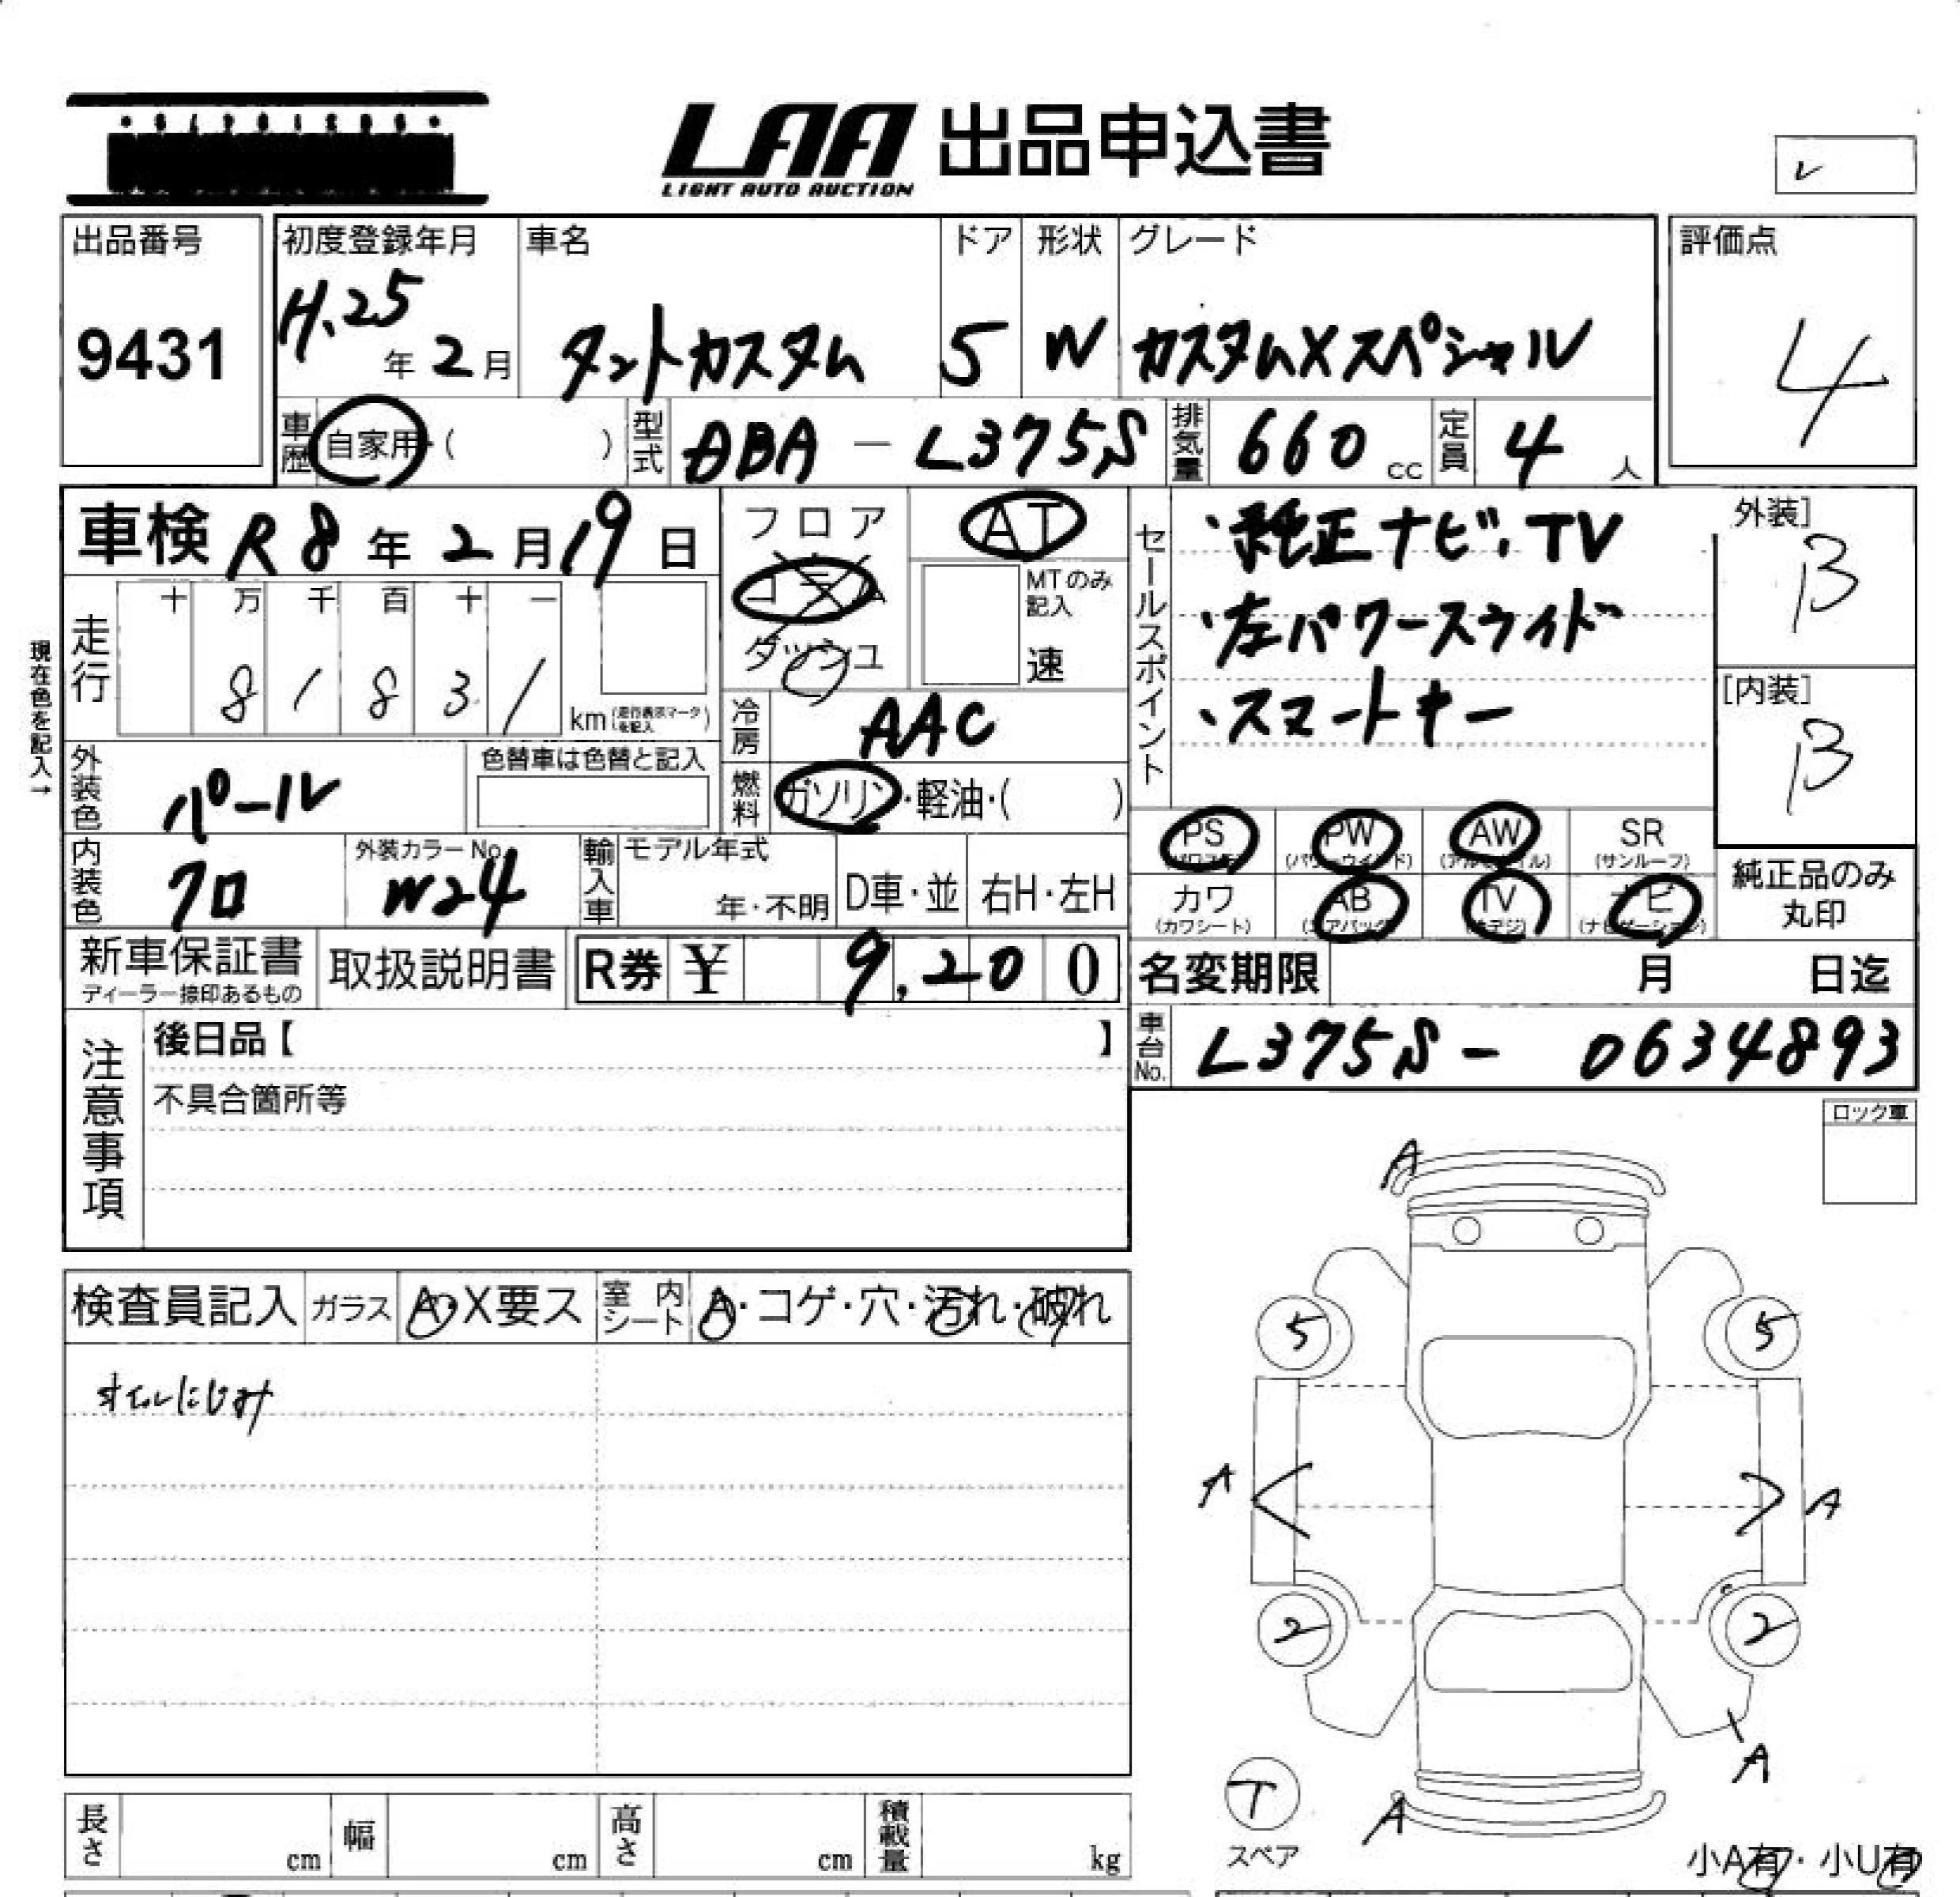 LAA 出品申込書
LIGHT AUTO AUCTION
レ
出品番号
9431
初度登録年月
H.25年2月
車名
タントカスタム
ドア
5
形状
W
グレード
カスタムXスペシャル
評価点
4
車歴 自家用・( )
型式 DBA - L375S
排気量 660 cc
定員 4 人
車検 R8年2月19日
フロア
コラム
ダッシュ
AT
MTのみ記入
速
セールスポイント
・純正ナビ、TV
・左パワースライド
・スマートキー
外装]
B
[内装]
B
現在色を記入→
走行
十 万 千 百 十 一
8 1 8 3 1
km (走行表示マークを記入)
冷房 AAC
燃料 ガソリン・軽油・( )
外装色 パール
色替車は色替と記入
内装色 クロ
外装カラーNo. W24
輸入車 モデル年式
年・不明
D車・並
右H・左H
PS (パワステ)
PW (パワーウインド)
AW (アルミホイル)
SR (サンルーフ)
カワ (カワシート)
AB (エアバック)
TV (地デジ)
ナビ (ナビゲーション)
純正品のみ丸印
新車保証書
ディーラー捺印あるもの
取扱説明書
R券 ¥ 9,200
名変期限 月 日迄
車台No. L375S - 0634893
注意事項
後日品【 】
不具合箇所等
ロック車
検査員記入
ガラス A・X要ス
室内シート A・コゲ・穴・汚れ・破れ
オイルにじみ
A
5 5
A A
2 2
A
T
スペア
A
小A有・小U有
長さ cm
幅 cm
高さ cm
積載量 kg